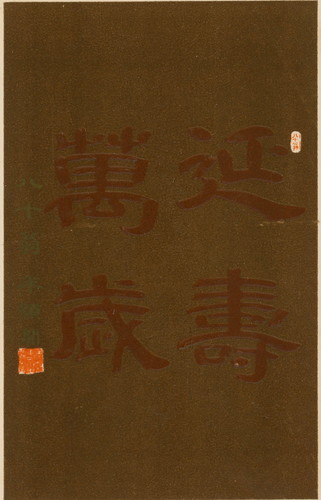 延壽
萬歲
八十翁